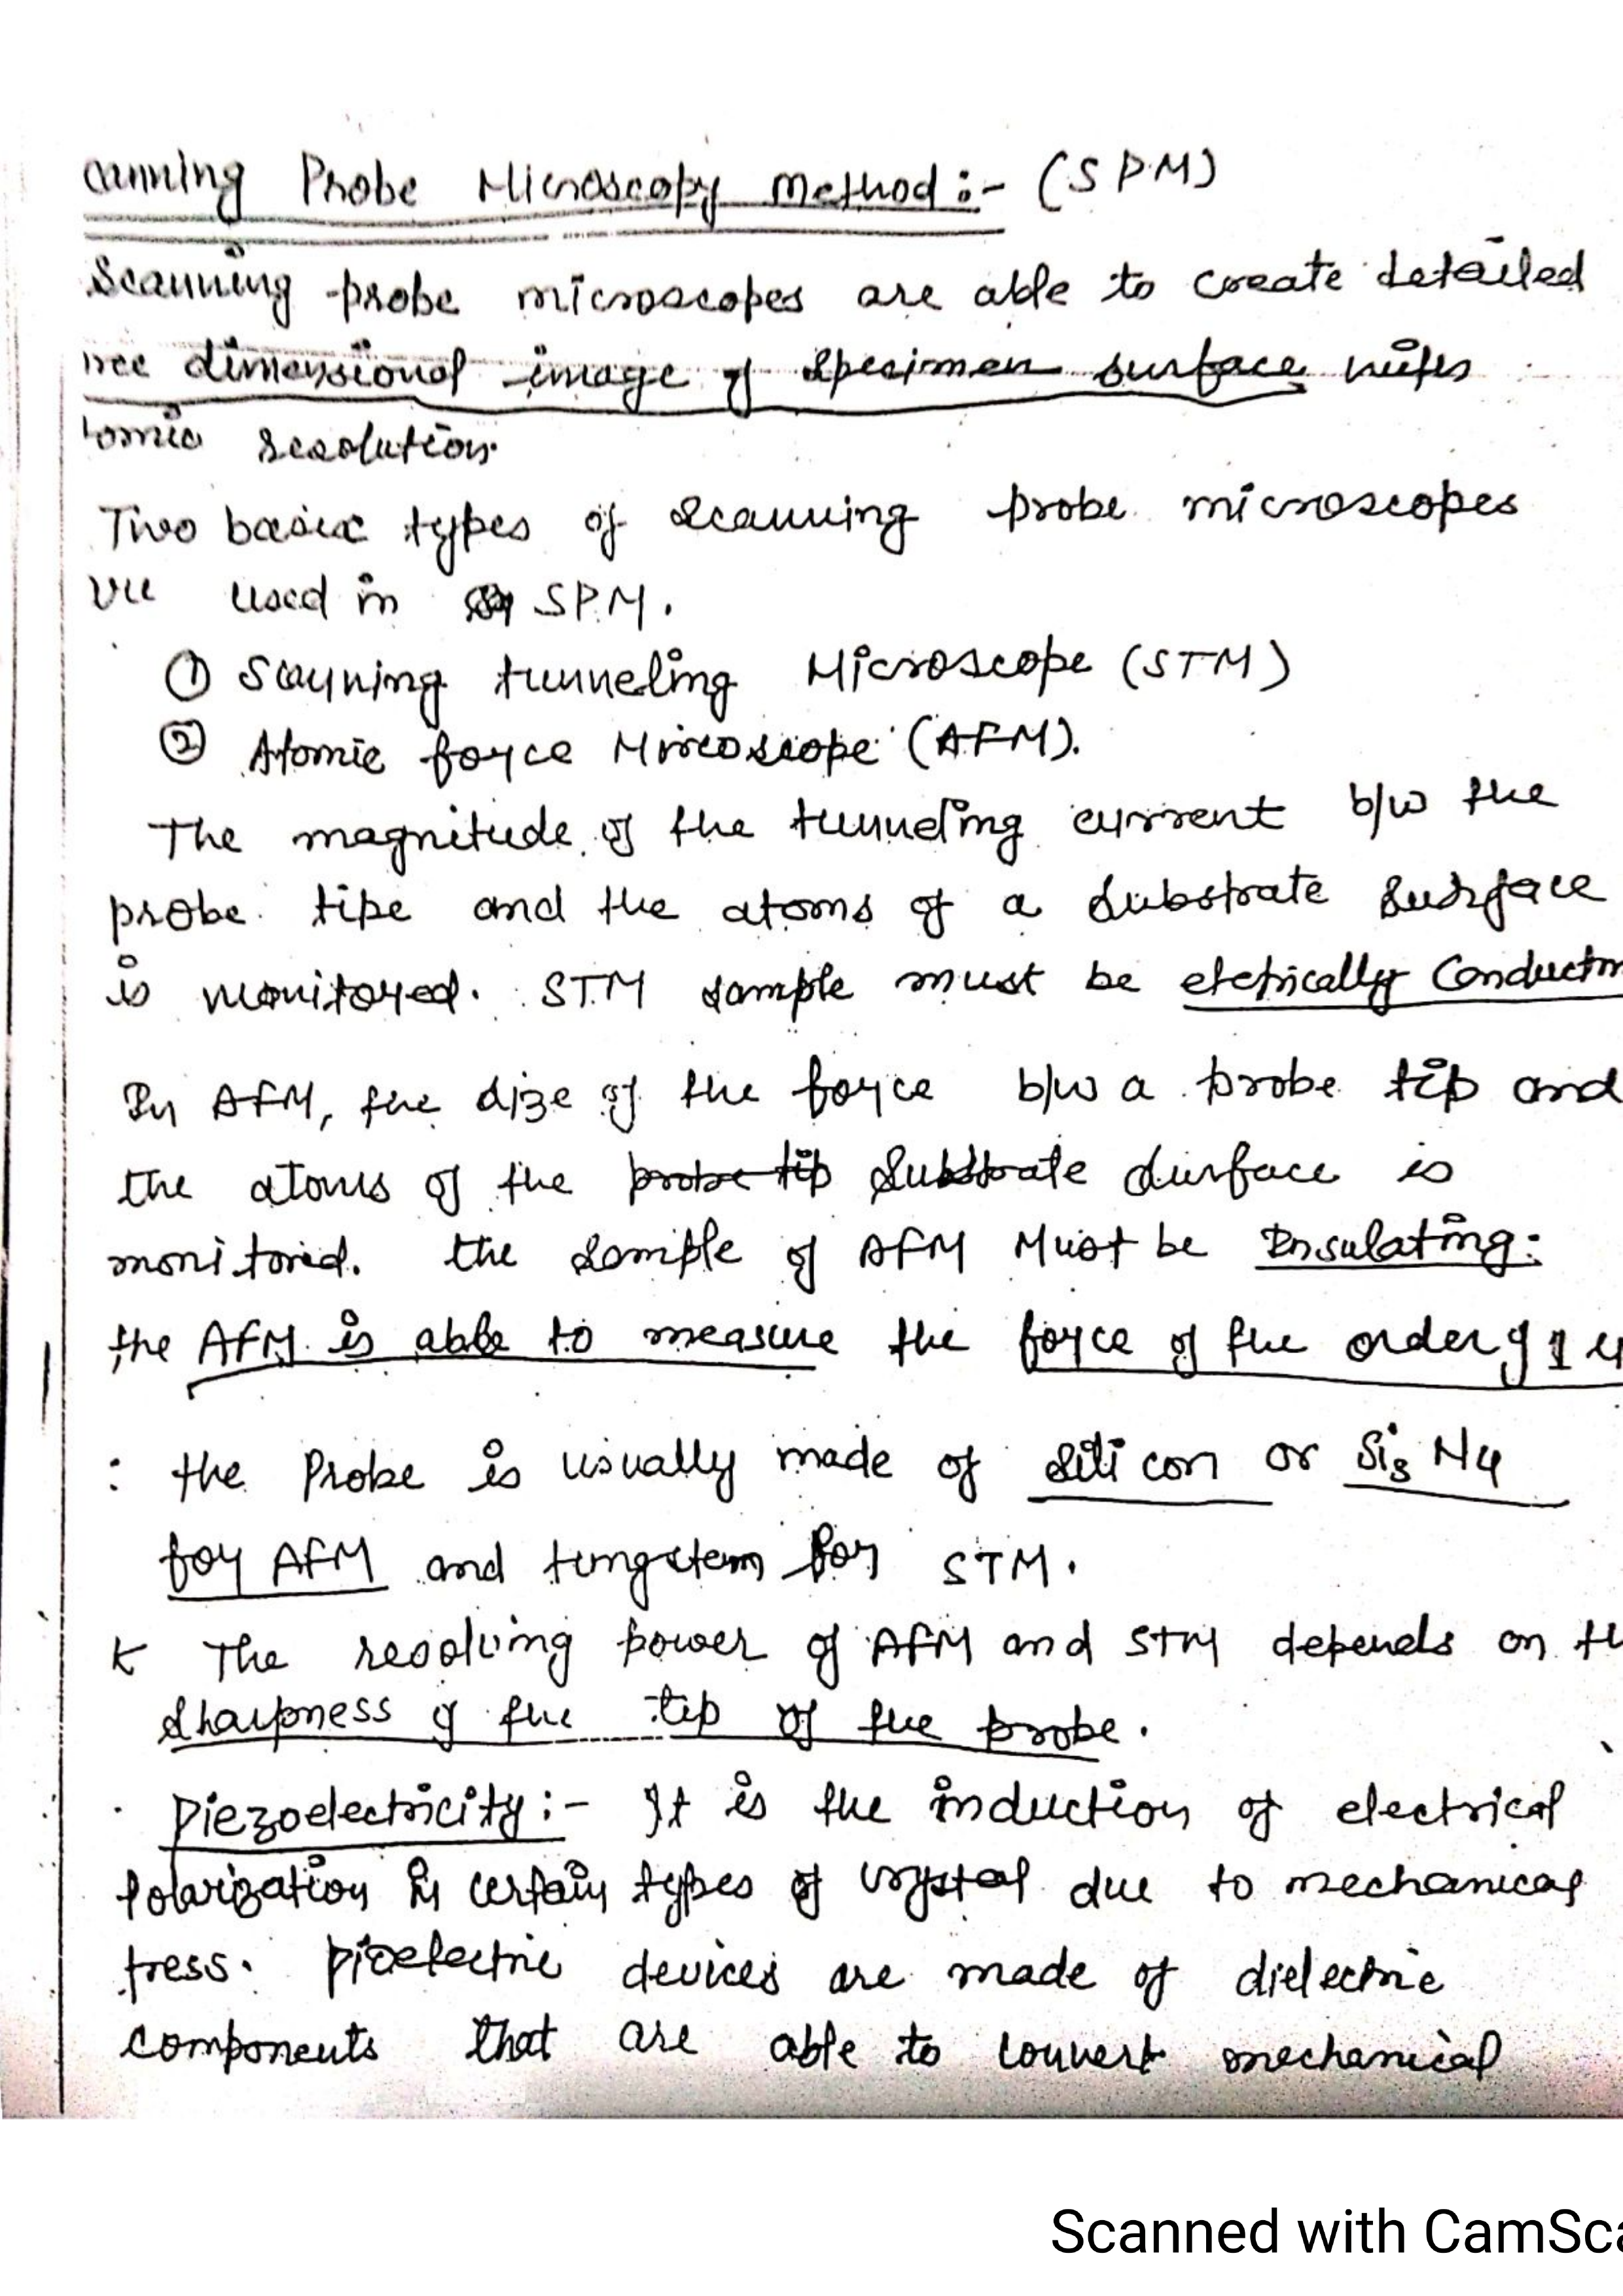 canning Probe Microscopy Method :- (SPM)
Scanning probe microscopes are able to create detailed
ree dimensional image of specimen surface with
tomic resolution.
Two basic types of scanning probe microscopes
are used in SPM.
① Scanning tunneling Microscope (STM)
② Atomic force Miroscope (AFM).
The magnitude of the tunneling current b/w the
probe tipe and the atoms of a substrate surface
is monitored. STM sample must be eletrically Conductin
In AFM, the size of the force b/w a probe tip and
the atoms of the probe tip Substrate surface is
monitored. the sample of AFM Must be Insulating:
the AFM is able to measure the force of the order of 1
: the Probe is usually made of silicon or Si3 N4
for AFM and tungstem for STM.
The resolving power of AFM and STM depends on th
sharpness of the tip of the probe.
. Piezoelectricity :- It is the induction of electrical
Polarization in certain types of crystal due to mechanical
tress. Pioelectric devices are made of dielectric
components that are able to convert mechanical
Scanned with CamSca